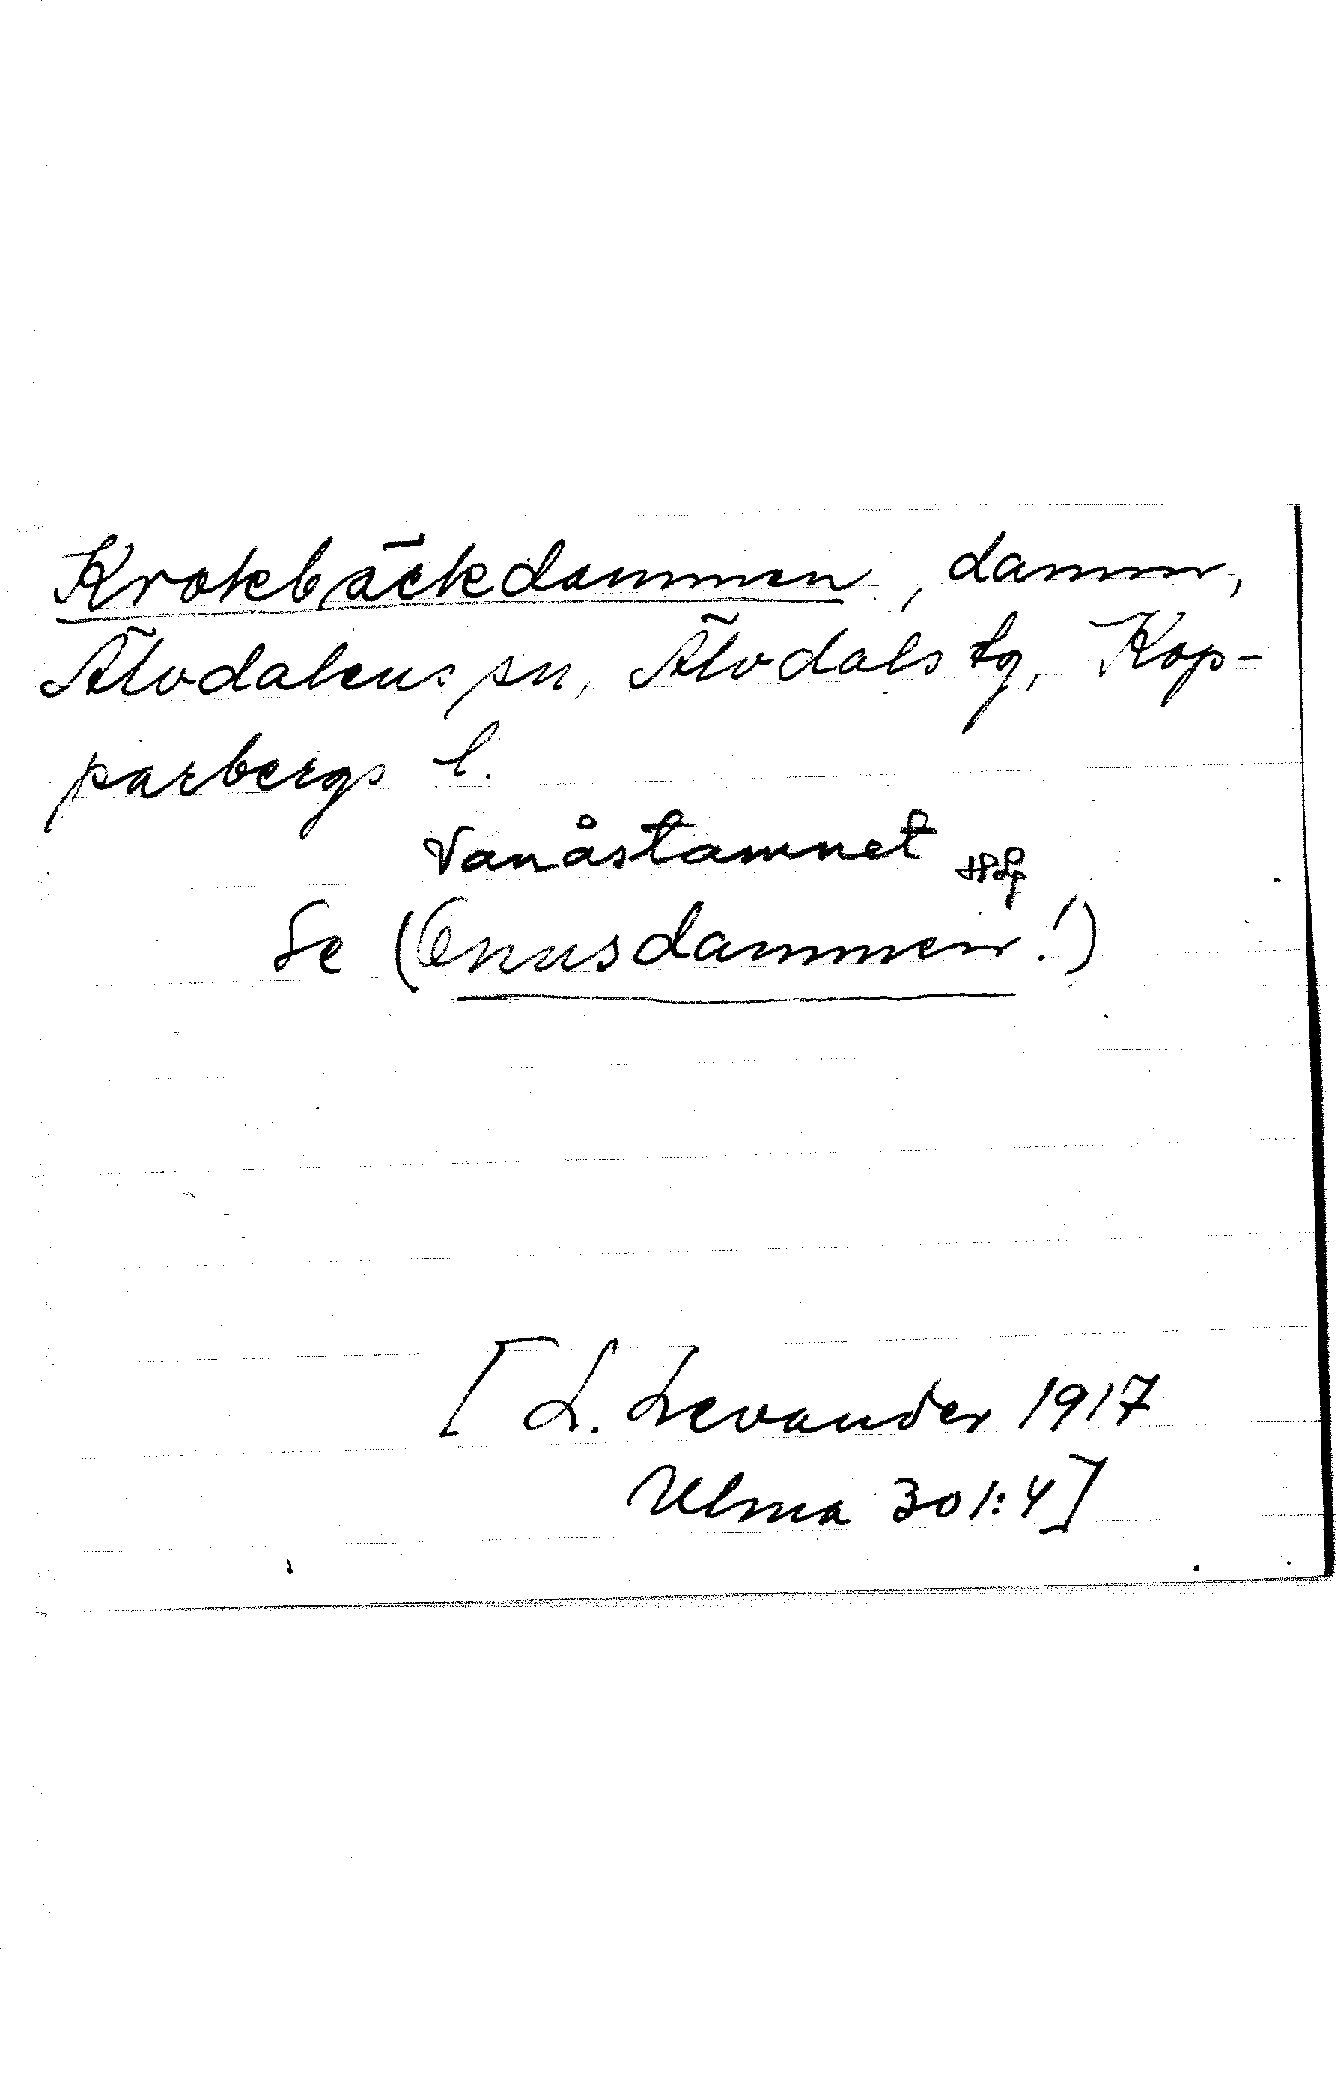 Krokbäckdammen, damm,
Älvdalens sn, Älvdals tg, Kop-
parbergs l.
Vanåstamnet
Se (Onnusdammen!)
[L. Levander 1917
Ulma 301:4]